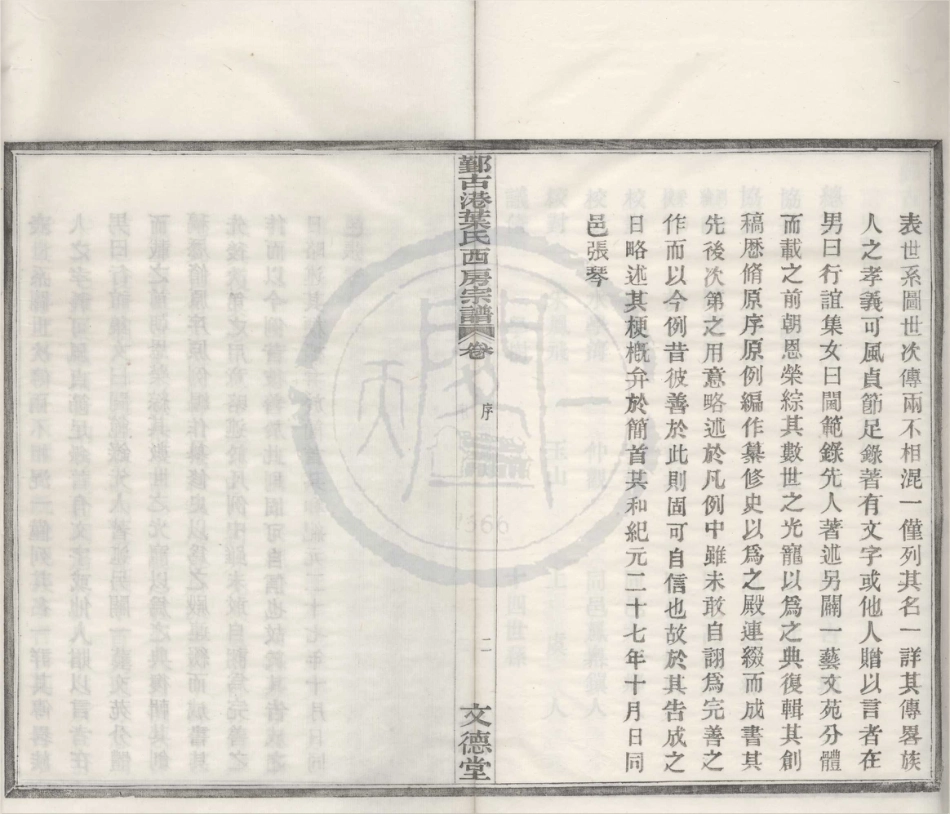 表世系圖世次傳兩不相混一僅列其名一詳其傳畧族
人之孝義可風貞節足錄著有文字或他人贈以言者在
男曰行誼集女曰閫範錄先人著述另闢一藝文苑分體
而載之前朝恩榮綜其數世之光寵以爲之典復輯其創
稿歷脩原序原例編作纂修史以爲之殿連綴而成書其
先後次第之用意略述於凡例中雖未敢自詡爲完善之
作而以今例昔彼善於此則固可自信也故於其告成之
日略述其梗概弁於簡首其和紀元二十七年十月日同
邑張琴
鄞古港葉氏西房宗譜 卷
序
二
文德堂
1566